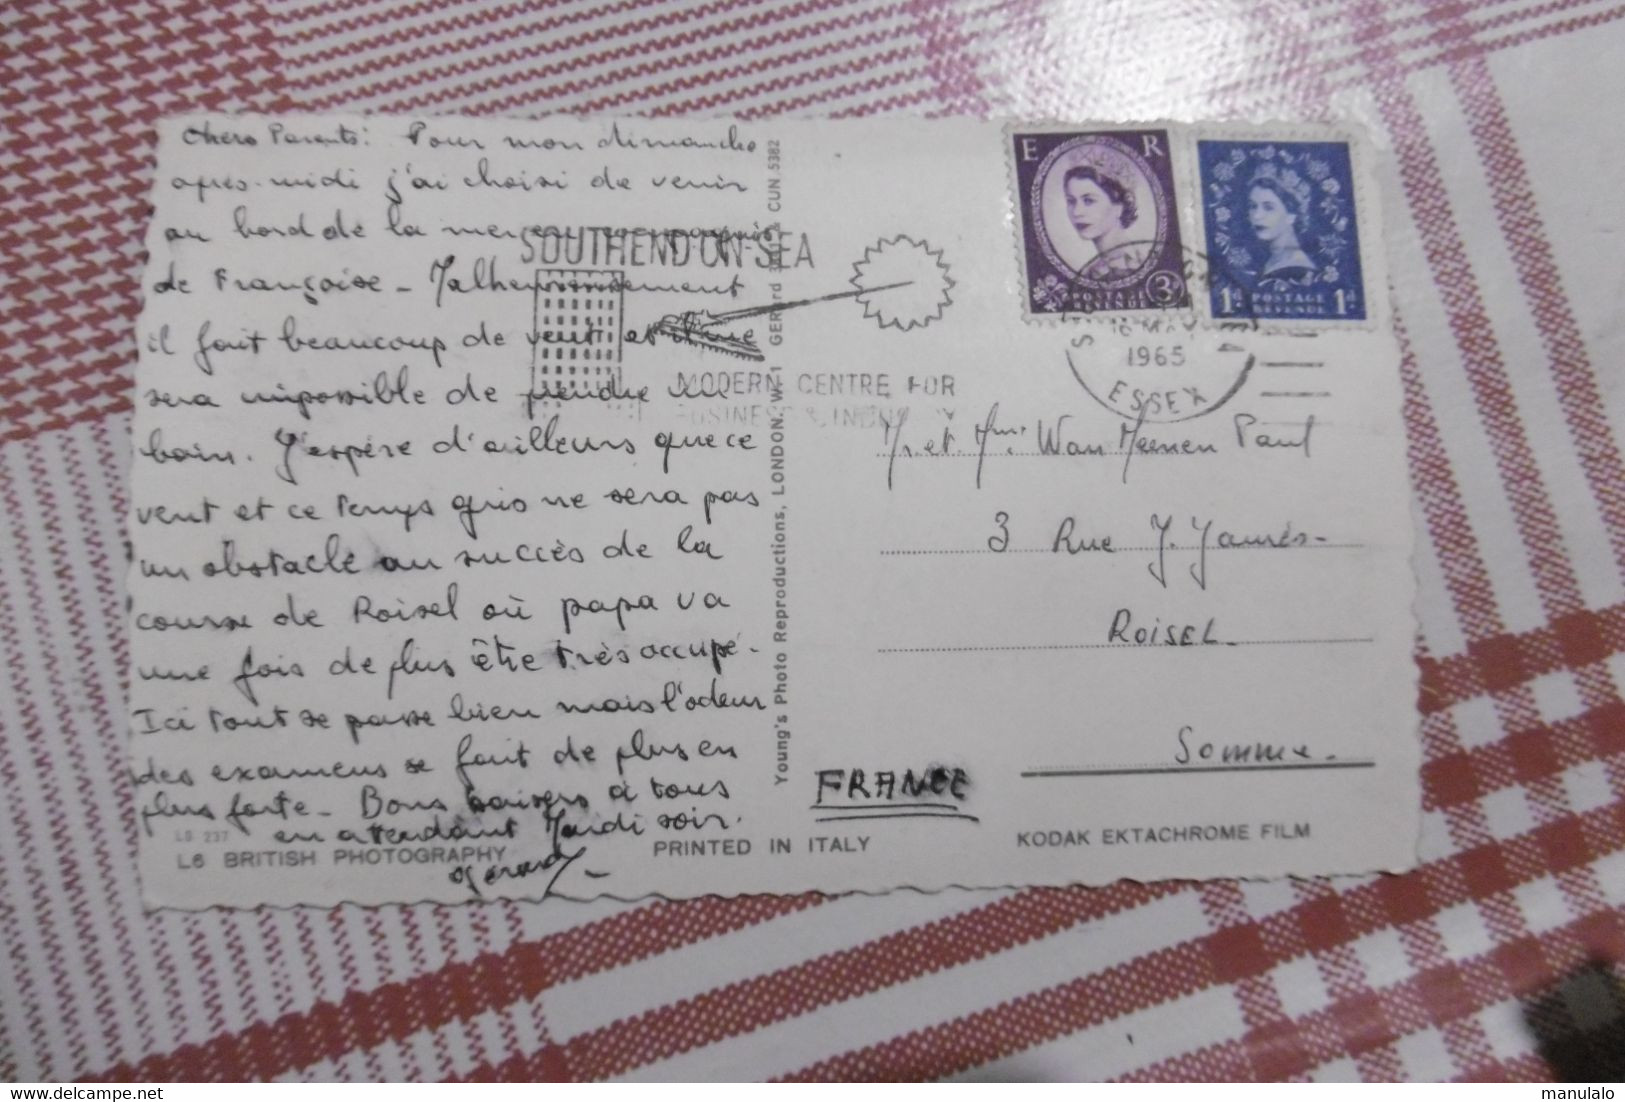 Chers Parents: Pour mon dimanche
après-midi j'ai choisi de venir
au bord de la mer en compagnie
de Françoise - Malheureusement
il fait beaucoup de vent et il me
sera impossible de prendre un
bain. J'espère d'ailleurs que ce
vent et ce temps gris ne sera pas
un obstacle au succès de la
course de Roisel où papa va
une fois de plus être très occupé.
Ici tout se passe bien mais l'odeur
des examens se fait de plus en
plus forte - Bons baisers à tous
en attendant Mardi soir.
Gérard
LS 237
L6 BRITISH PHOTOGRAPHY
PRINTED IN ITALY
KODAK EKTACHROME FILM
Young's Photo Reproductions, LONDON, W.1 GERrard CUN 5382
SOUTHEND-ON-SEA
MODERN CENTRE FOR
BUSINESS & INDUSTRY
E R
POSTAGE REVENUE 3D
1D POSTAGE REVENUE 1D
16 MAY
1965
ESSEX
Mr. et Mme Wan Meenen Paul
3 Rue J. Jaurès-
ROISEL-
Somme-
FRANCE
© Delcampe.net
manulalo